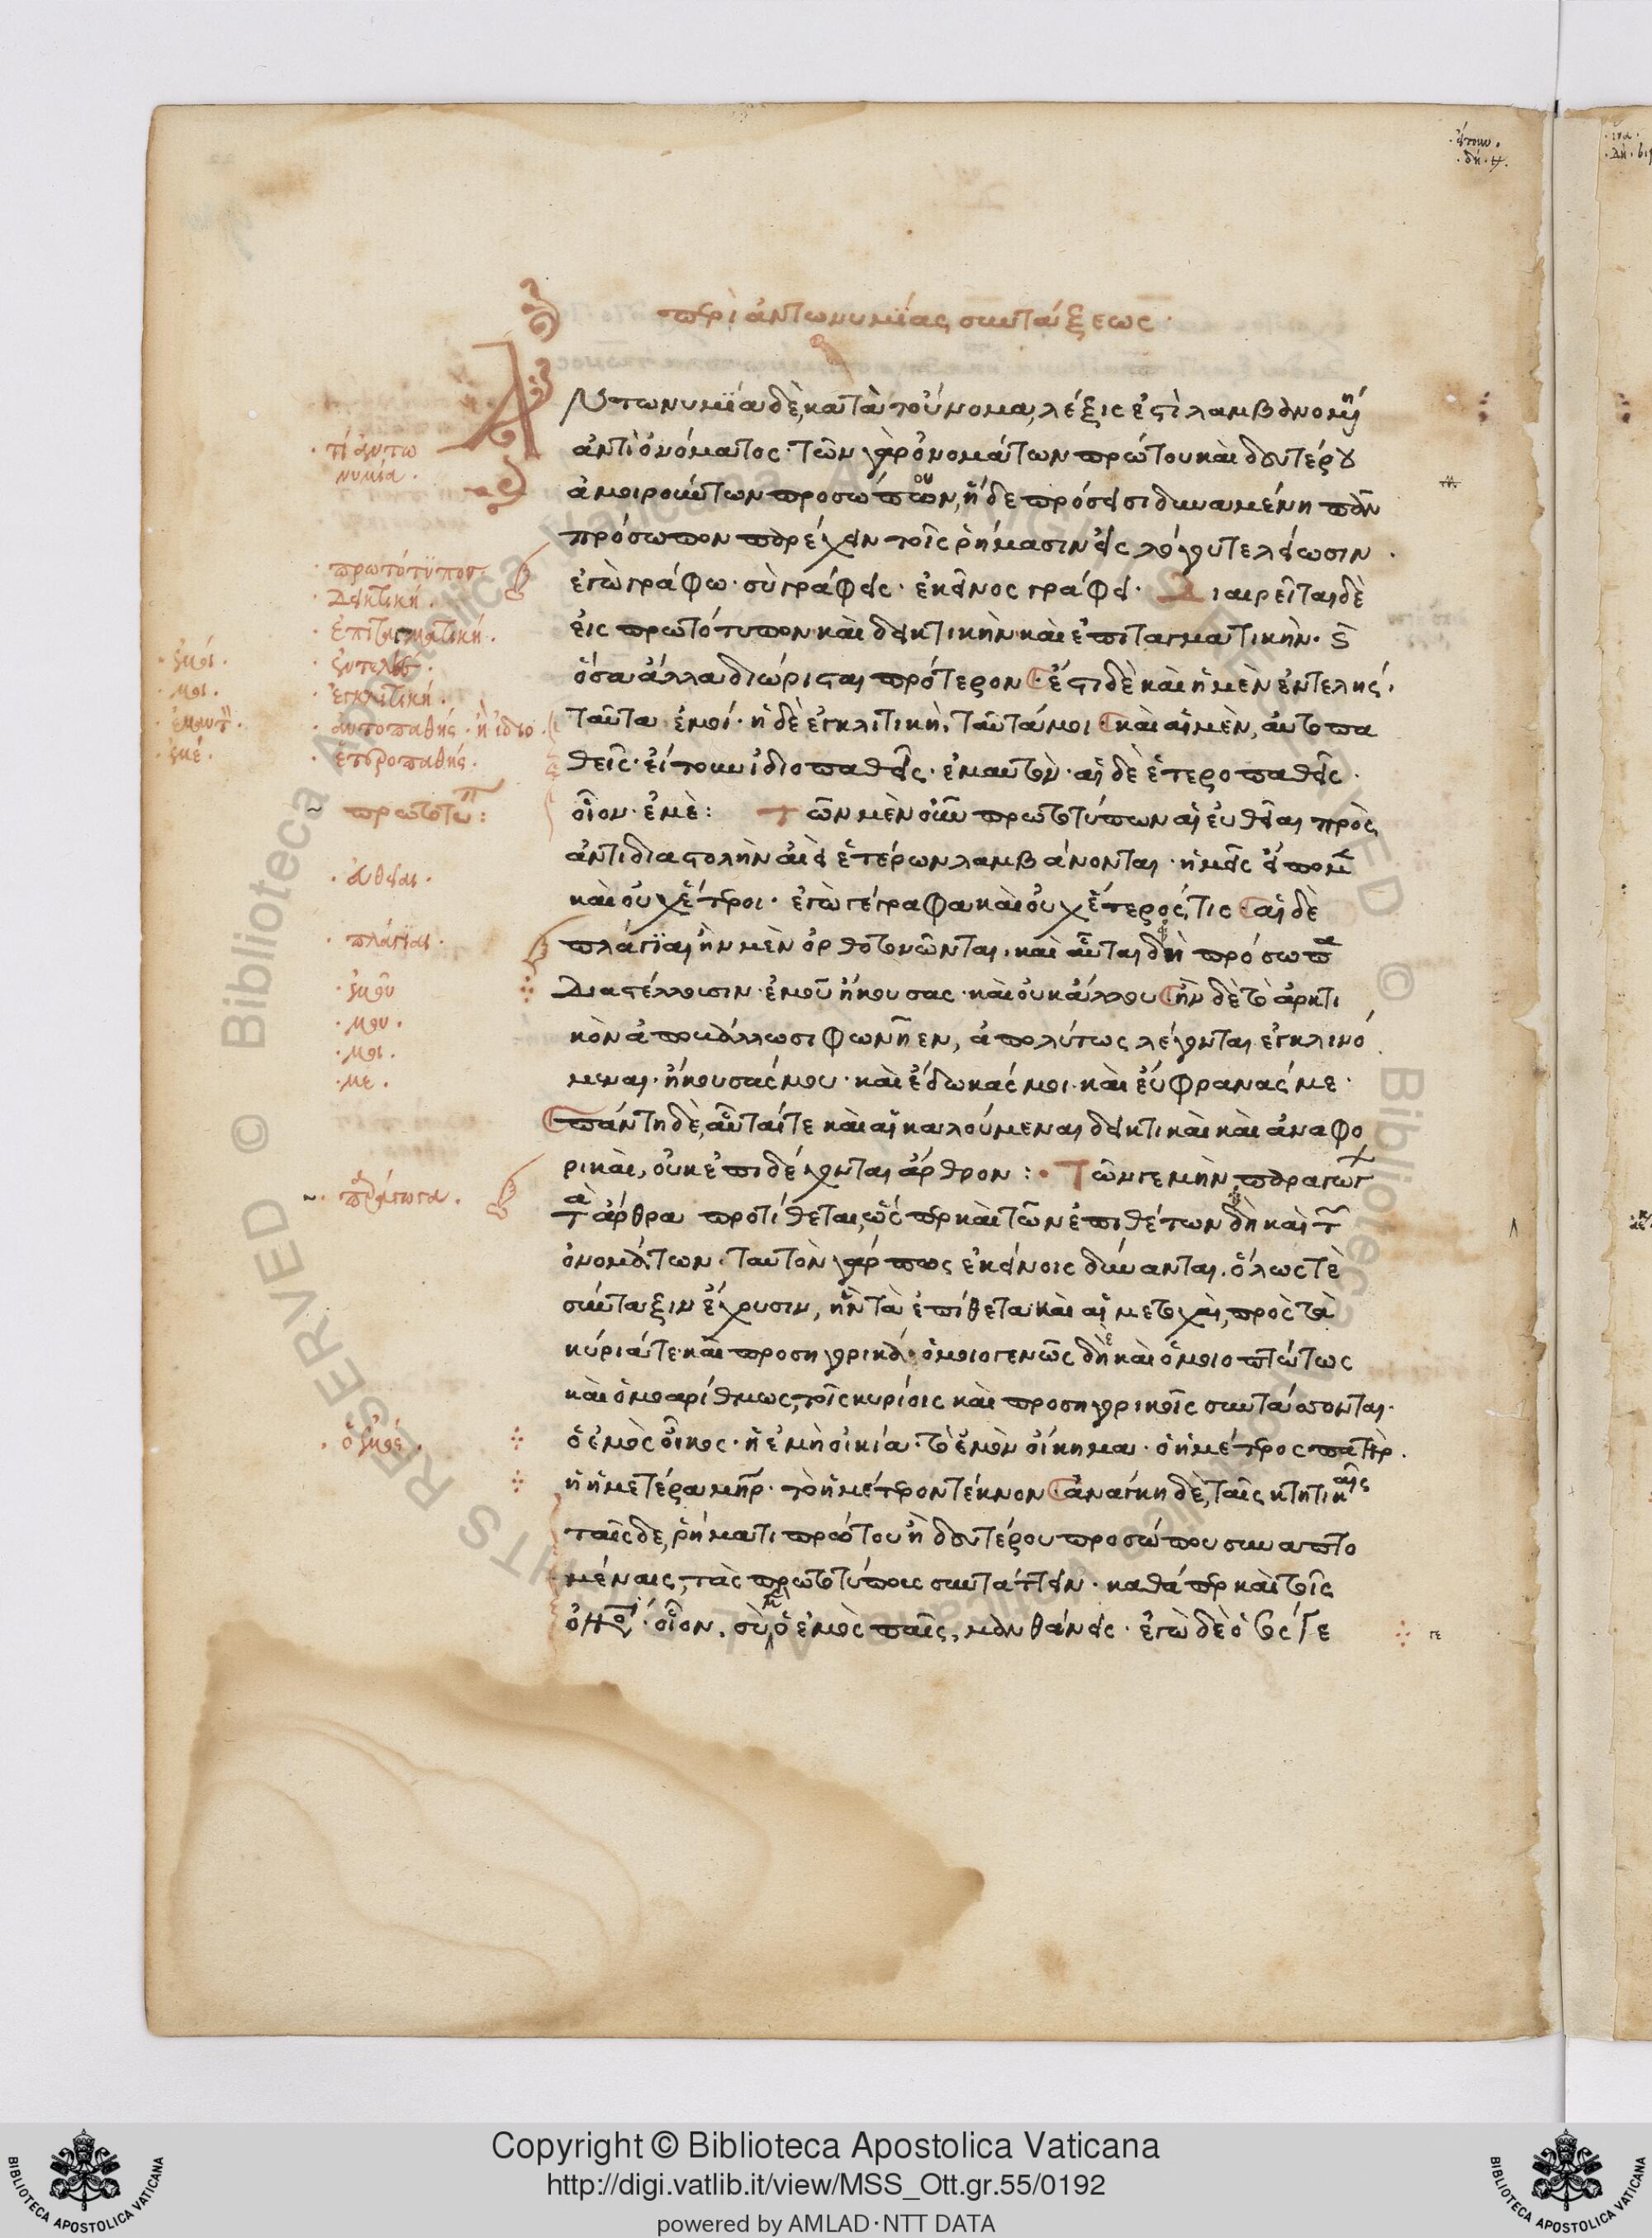 περὶ ἀντωνυμίας συντάξεως·
Ἀντωνυμία δὲ, κατὰ τοὔνομα, λέξις ἐστὶ λαμβανομένη
ἀντὶ ὀνόματος· τῶν γὰρ ὀνομάτων πρώτου καὶ δευτέρου
ἀμοιρούντων προσώπου, ἥδε πρόσεισι δυναμένη πᾶν
πρόσωπον παρέχειν τοῖς ῥήμασιν εἰς λόγου τελείωσιν·
ἐγὼ γράφω· σὺ γράφεις· ἐκεῖνος γράφει· Διαιρεῖται δὲ
εἰς πρωτότυπον καὶ δεικτικὴν καὶ ἐπιταγματικὴν· καὶ
ὅσα ἄλλα διώρισται πρότερον· ἔστι δὲ καὶ ἡ μὲν ἐντελής·
ταῦτα ἐμοί· ἡ δὲ ἐγκλιτικὴ· ταῦτά μοι· καὶ αἱ μὲν, αὐτοπα
θεῖς· εἴτουν ἰδιοπαθεῖς· ἐμαυτὸν· αἱ δὲ ἑτεροπαθεῖς·
οἷον· ἐμὲ: Τῶν μὲν οὖν πρωτοτύπων αἱ εὐθεῖαι πρὸς
ἀντιδιαστολὴν ἀεὶ ἑτέρων λαμβάνονται· ἡμεῖς εἴπομεν
καὶ οὐχ ἕτεροι· ἐγὼ γέγραφα καὶ οὐχ ἕτερός τις· αἱ δὲ
πλάγϊαι ἢν μὲν ὀρθοτονῶνται, καὶ αὗται δὴ πρόσωπα
διαστέλλουσιν· ἐμοῦ ἤκουσας· καὶ οὐκ ἄλλου· ἢν δὲ τὸ ἀρκτι
κὸν ἀποβάλλωσι φωνῆεν, ἀπολύτως λέγονται ἐγκλινό
μεναι· ἤκουσάς μου· καὶ ἔδωκάς μοι· καὶ εὔφρανάς με·
πάντη δὲ, αὗταί τε καὶ αἱ καλούμεναι δεικτικαὶ καὶ ἀναφο
ρικαὶ, οὐκ ἐπιδέχονται ἄρθρον: Τῶν γε μὴν παραγώγων
τὰ ἄρθρα προτίθεται, ὥσπερ καὶ τῶν ἐπιθέτων δὴ καὶ τῶν
ὀνομάτων· ταυτὸν γάρ πως ἐκείνοις δύνανται· ὅλως τὲ
σύνταξιν ἔχουσιν, ἣν τὰ ἐπίθετα καὶ αἱ μετοχαὶ, πρὸς τὰ
κύριά τε καὶ προσηγορικά· ὁμοιογενῶς δὲ καὶ ὁμοιοπτώτως
καὶ ὁμοαρίθμως, τοῖς κυρίοις καὶ προσηγορικοῖς συντάσσονται·
ὁ ἐμὸς οἶκος· ἡ ἐμὴ οἰκία· τὸ ἐμὸν οἴκημα· ὁ ἡμέτερος πατήρ·
ἡ ἡμετέρα μήτηρ· τὸ ἡμέτερον τέκνον· ἀνάγκη δὲ, ταῖς κτητικαῖς
ταῖς δε, ῥήματι πρώτου ἢ δευτέρου προσώπου συναπτο
μέναις, τὰς πρωτοτύποις συντάττειν· καθάπερ καὶ τοῖς
οἷον· σὺ ὁ ἐμὸς παῖς, μανθάνεις· ἐγὼ δὲ ὁ σός γε
τί ἀντω
νυμία·
πρωτότϋπον
δεικτική·
ἐπιταγματική·
ἐντελής·
ἐγκλιτική·
αὐτοπαθής· ἢ ἰδιο
ἑτεροπαθής·
ἐμοί·
μοι·
ἐμαυτὸν·
ἐμέ·
πρωτότυπ:
εὐθεῖαι·
πλάγϊαι·
ἐμοῦ
μου·
μοι·
με·
παράγωγα·
ὁ ἐμός·
γε